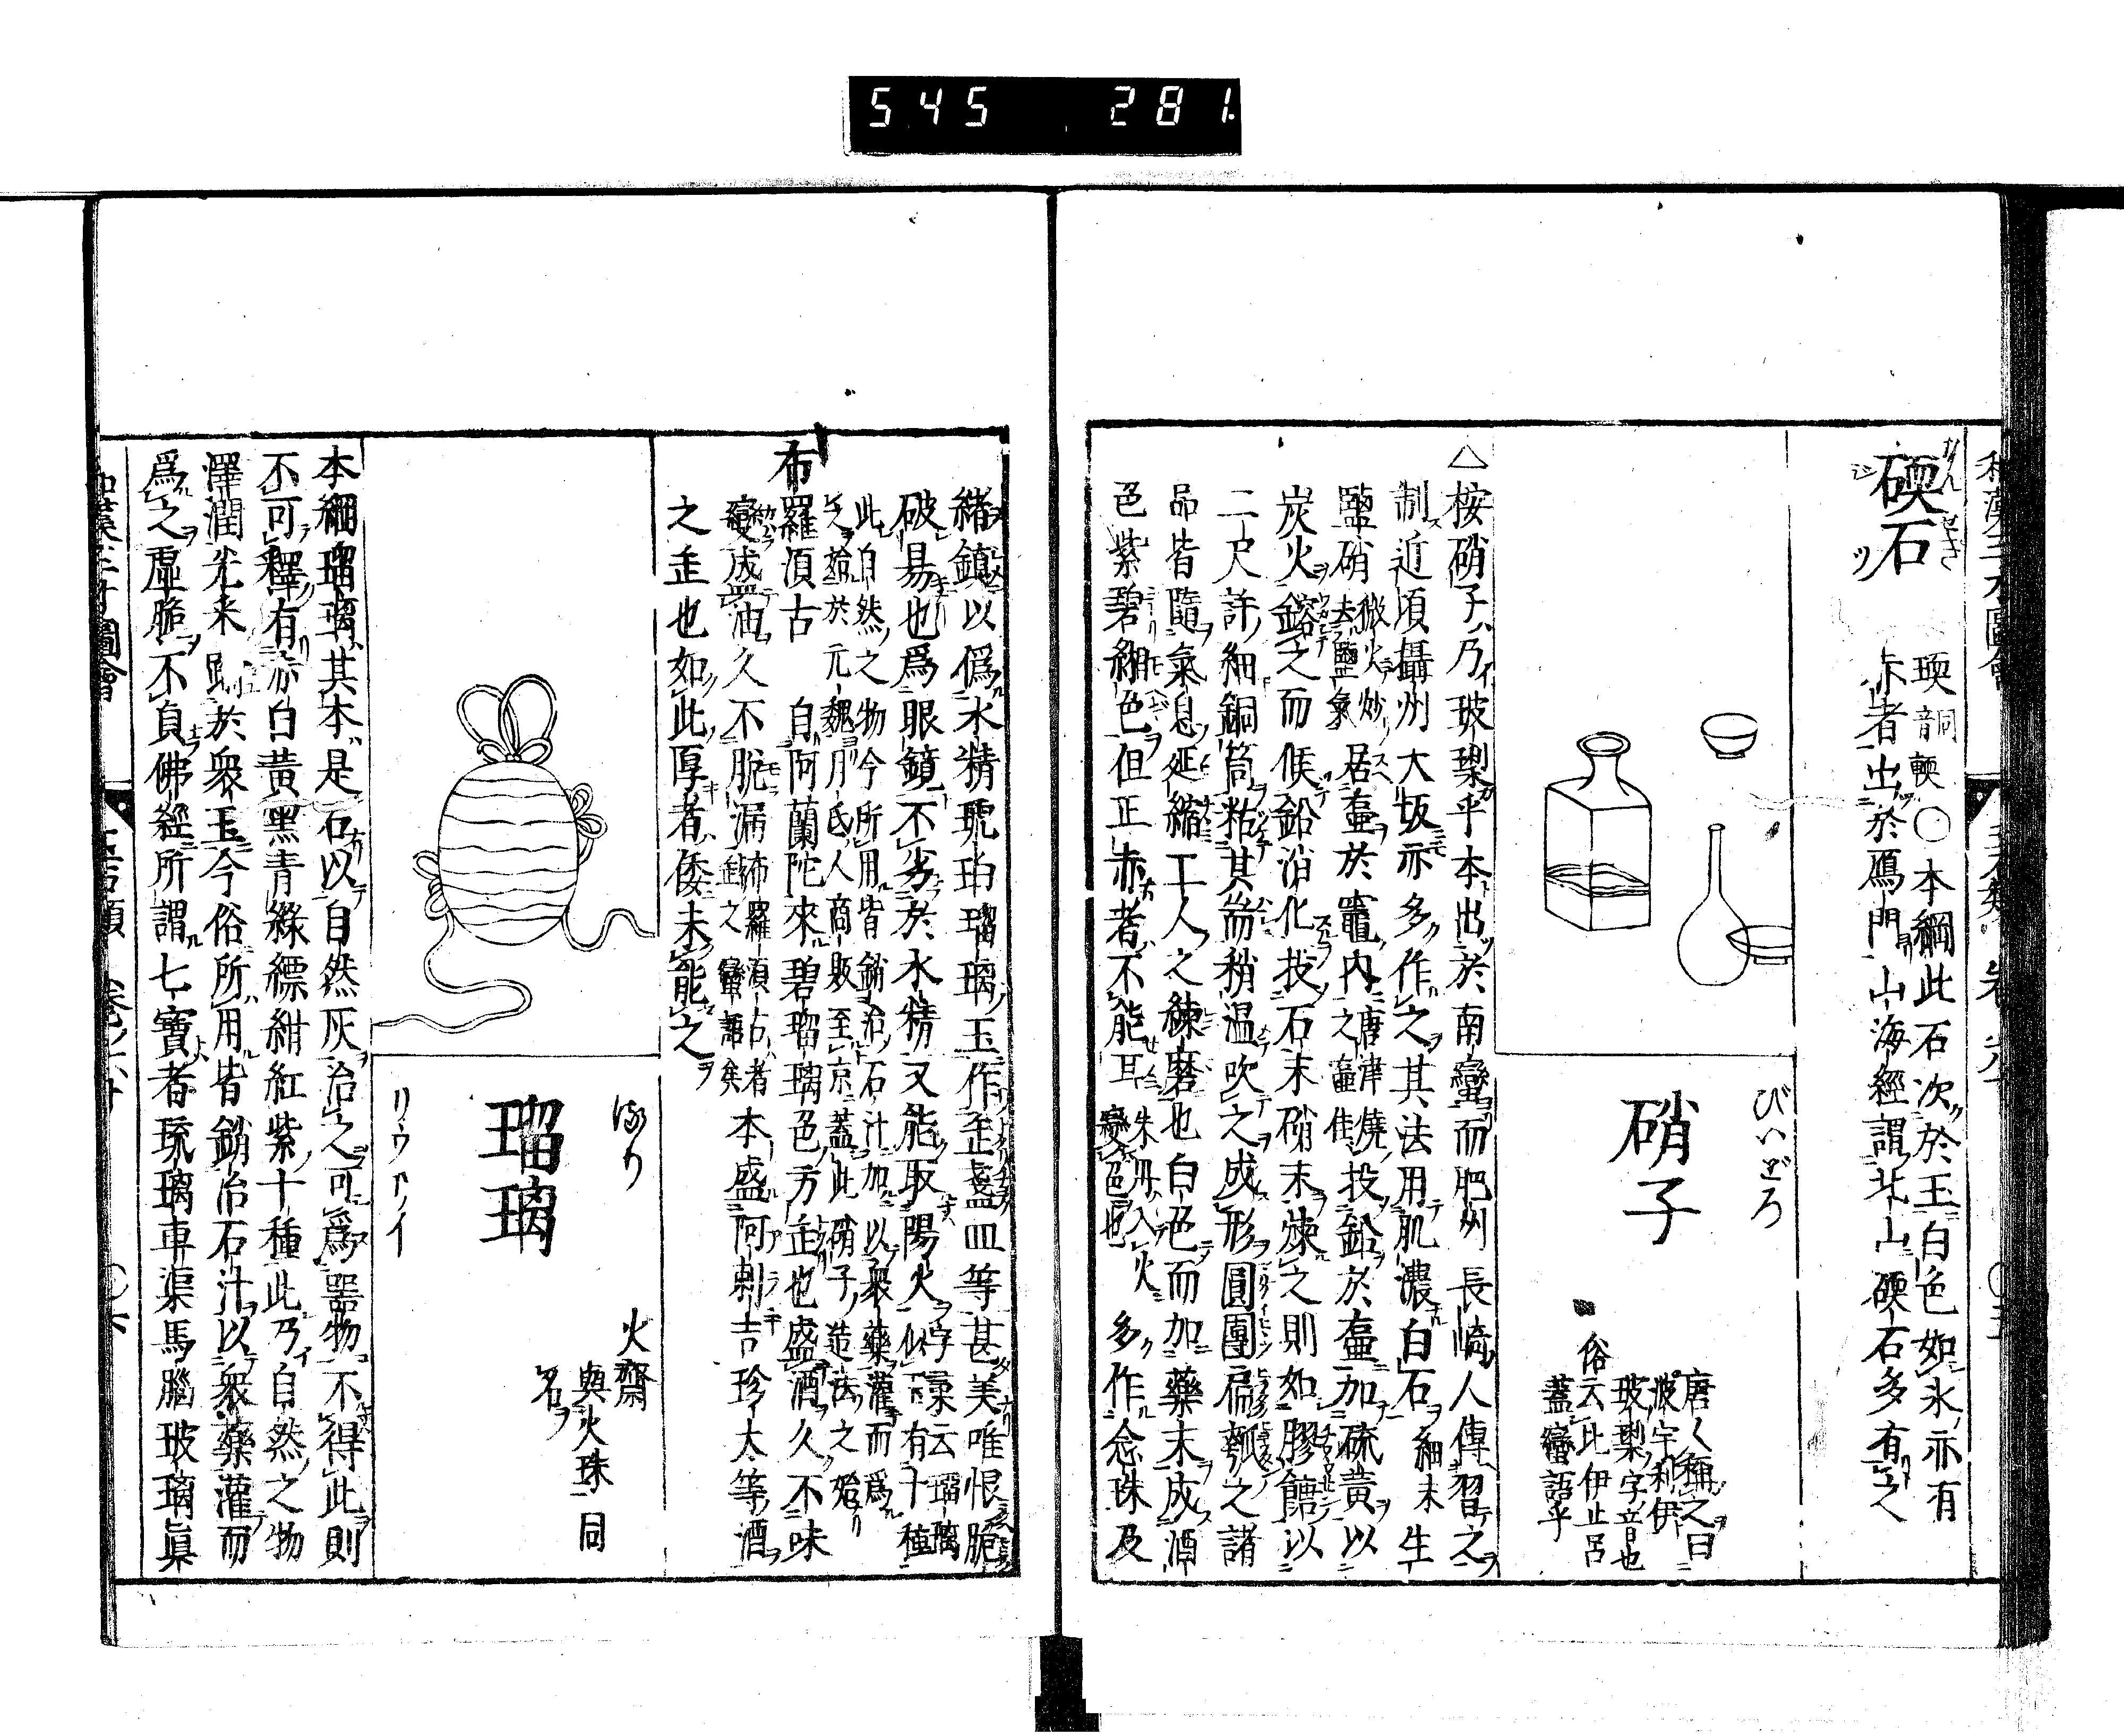 545 281
なんせき
礝石
瑌同音輭〇本綱此石次於玉白色如氷亦有
赤者出於鴈門山海經謂北山礝石多有之
びいどろ
硝子
唐人稱之曰
波宇利伊
玻瓈字音也
俗云此伊止呂
蓋蠻語乎
△按硝子乃玻瓈乎本出於南蠻而肥州長﨑人傳習之
制近頃攝州大坂亦多作之其法用肌濃白石細末生
鹽硝微火炒去鹽氣居壺於竈内唐津燒之壺佳投鉛於壺加硫黄以
炭火鎔之而候鉛消化投石末硝末煉之則如膠餹以
二尺許細銅筒粘其耑稍温吹之成形圓團扁瓠之諸
品皆隨氣息延縮工人之練磨也白色而加藥末成酒
色紫碧緗色但正赤者不能耳朱丹入火變色也多作念珠及
緒鎮以僞水精琥珀瑠璃玉作盃盞皿等甚美唯恨脆
破易也爲眼鏡不劣於水精又能取陽火似字彙云瑠璃有十種
此自然之物今所用皆銷冶石汁加以衆藥灌而爲
之始於元魏月氏人商販至京蓋此硝子造法之始
布羅湏古 自阿蘭陀來碧瑠璃色方盃也盛酒久不味
變成盛油久不脱漏布羅湏古者盃之蠻語矣本盛阿剌吉珍太等酒
之盃也如此厚者倭未能之
るり
瑠璃
リウリイ
火齊
與火珠同
名
本綱瑠璃其本是石以自然灰治之可爲噐物不得此則
不可釋有赤白黄黑青緑縹紺紅紫十種此乃自然之物
澤潤光采踰於衆玉今俗所用皆銷冶石汁以衆藥灌而
爲之虚脆不貞佛經所謂七寳者琉璃車渠馬腦玻璃眞